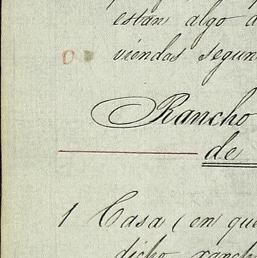 estan algo
viendas segun
Rancho
de
1 Casa (en que
dicho ranch